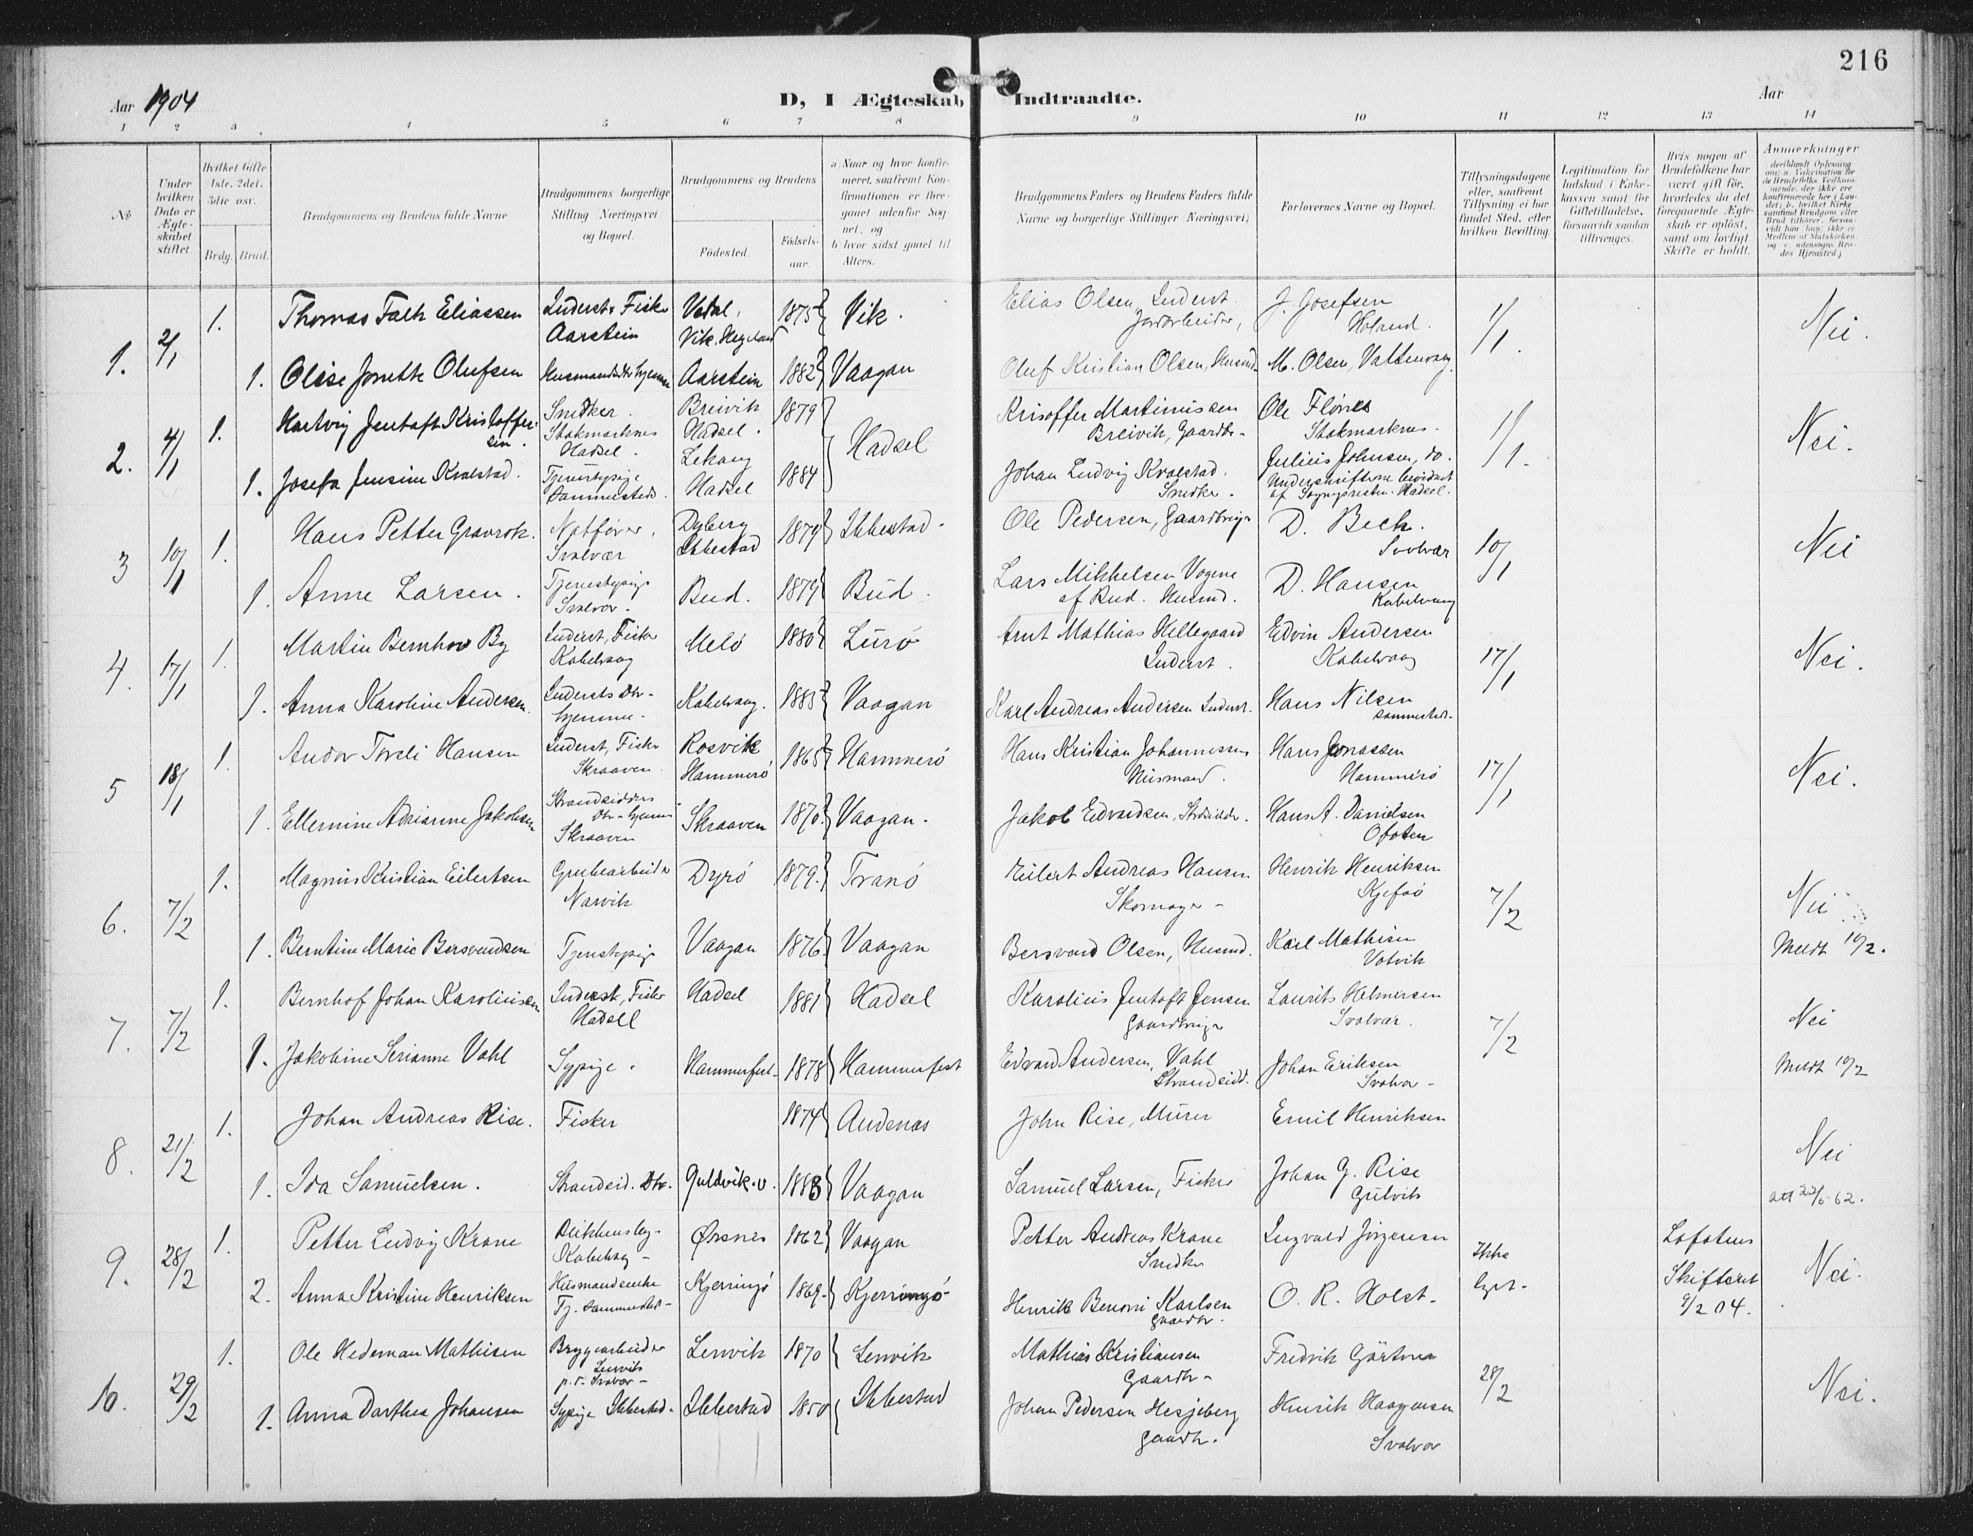 216
Aar 1904
D, I Ægteskab Indtraadte.
Aar
1 2 3 4 5 6 7 8 9 10 11 12 13 14
No.
Under hvilken Dato er Ægteskabet stiftet.
Hvilket Gifte 1ste, 2det, 3die osv.
Brdg. Brud.
Brudgommens og Brudens fulde Navne
Brudgommens borgerlige Stilling Næringsvei og Bopæl.
Brudgommens og Brudens
Fødested.
Fødsels-aar.
a Naar og hvor konfirmeret, saafremt Konfirmationen er foregaaet udenfor Sognet, og
b hvor sidst gaaet til Alters.
Brudgommens Faders og Brudens Faders fulde Navne og borgerlige Stillinger Næringsvei;
Forlovernes Navne og Bopæl.
Tillysningsdagene eller, saafremt Tillysning ei har fundet Sted, efter hvilken Bevilling.
Legitimation for Indskud i Enkekassen samt for Giftetilladelse, forsaavidt saadan tiltrænges.
Hvis nogen af Brudefolkene har været gift før, hvorledes da det foregaaende Ægteskab er opløst, samt om lovligt Skifte er holdt.
Anmerkninger
1. 2/1 1. Thomas Falk Eliassen Inderst, Fisker Aarstein Vik. 1875 Vik. Elias Olsen, Inderst J. Josefsen Holand. 1/1. Nei.
1. Olise Jonette Olufsen Aarstein 1882 Vaagan Oluf Kristian Olsen, Husmd. M. Olsen,
2. 4/1 1. Hartvig Jentoft Kristoffersen. Snedker. Stokmarknes Hadsel. Breivik Hadsel. 1879 Hadsel Krisoffer Martinussen Breivik, Gaardbr- Ole Flønes Stokmarknes. 1/1. Nei.
1. Josefa Jensine Kvalstad. Tjenestepige Sammesteds. Lekang Hadsel 1884 Johan Ludvig Kvalstad. Snedker. Julius Johnsen, do. Underskrifterne bevidnet
3 10/1 1. Hans Petter Gravrok. Notfører, Svolvær Dyberg Ibbestad 1879 Ibbestad. Ole Pedersen, Gaardbruger D. Beck. Svolvær 10/1 Nei
1. Anne Larsen. Tjenestepige Svolvær. Bud. 1879 Bud. Lars Mikkelsen Vogene af Bud. Husmd. D. Hansen Kabelvaag
4. 17/1 1. Martin Bernhov By Inderst, Fisker Kabelvaag Melö 1880 Lurö Arnt Mathias Hellegaard Inderst. Edvin Andersen Kabelvaag 17/1 Nei.
1. Anna Karoline Andersen. Indersts Dtr. hjemme. Kabelvaag. 1885 Vaagan Karl Andreas Andersen Inderst. Hans Nilsen sammesteds.
5 18/1 1. Andor Toreli Hansen Inderst, Fisker Skraaven Rosvik Hammerö 1865 Hammerö Hans Kristian Johannessen Husmand. Hans Jonassen Hammerö 17/1 Nei.
1. Ellemine Adrianne Jakobsen Strandsidders Dtr. hjemme Skraaven Skraaven 1870. Vaagan. Jakob Edvardsen, Strdsidder. Hans A. Danielsen Ofoten
6. 7/2 1. Magnus Kristian Eilertsen Grubearbeider Narvik Dyrö 1879. Tranö Eilert Andreas Hansen Skomager Henrik Henriksen Kjefsö 7/2 Nei
1. Berntine Marie Bersvendsen Tjenestepige Vaagan 1876. Vaagan Bersvend Olsen, Husmd. Karl Mathisen Votvik Meldt 10/2.
7. 7/2 1. Bernhof Johan Karoliussen Inderst, Fisker Hadsel Hadsel 1881 Hadsel Karolius Jentoft Jensen Gaardbruger Laurits Helmersen Svolvær. 7/2 Nei
1. Jakobine Serianne Vahl Sypige. Hammerfest 1878 Hammerfest Edvard Andersen, Vahl Strandsidd. Johan Eriksen Svolvær Meldt 10/2
8. 21/2 1. Johan Andreas Rise. Fisker 1874 Andenæs John Rise, Murer Emil Henriksen Nei
1. Ida Samuelsen. Strandsid. Dtr. Guldvik. V. 1883 Vaagan Samuel Larsen, Fisker Johan G. Rise Gulvik
9. 28/2 1. Petter Ludvig Krane Kabelvaag Ørsnes 1862 Vaagan Petter Andreas Krane Snedker Ingvald Jörgensen Ikke lyst. Lofotens Skifteret 9/2 04. Nei.
2. Anna Kristine Henriksen Husmandsenke Tj. sammesteds Kjerringö 1869. Kjerringö Henrik Benoni Karlsen Gaardbr. O. R. Holst.
10. 29/2 1. Ole Hedeman Mathisen Bryggearbeider Lenvik p.t. Svolvær Lenvik 1870 Lenvik Mathias Kristiansen Gaardbr. Fredrik Gärtner 28/2 Nei.
1. Anna Dorthea Johansen Sypige Ibbestad Ibbestad 1850 Ibbestad Johan Pedersen Hesjeberg Gaardbr. Henrik Haagensen Svolvær